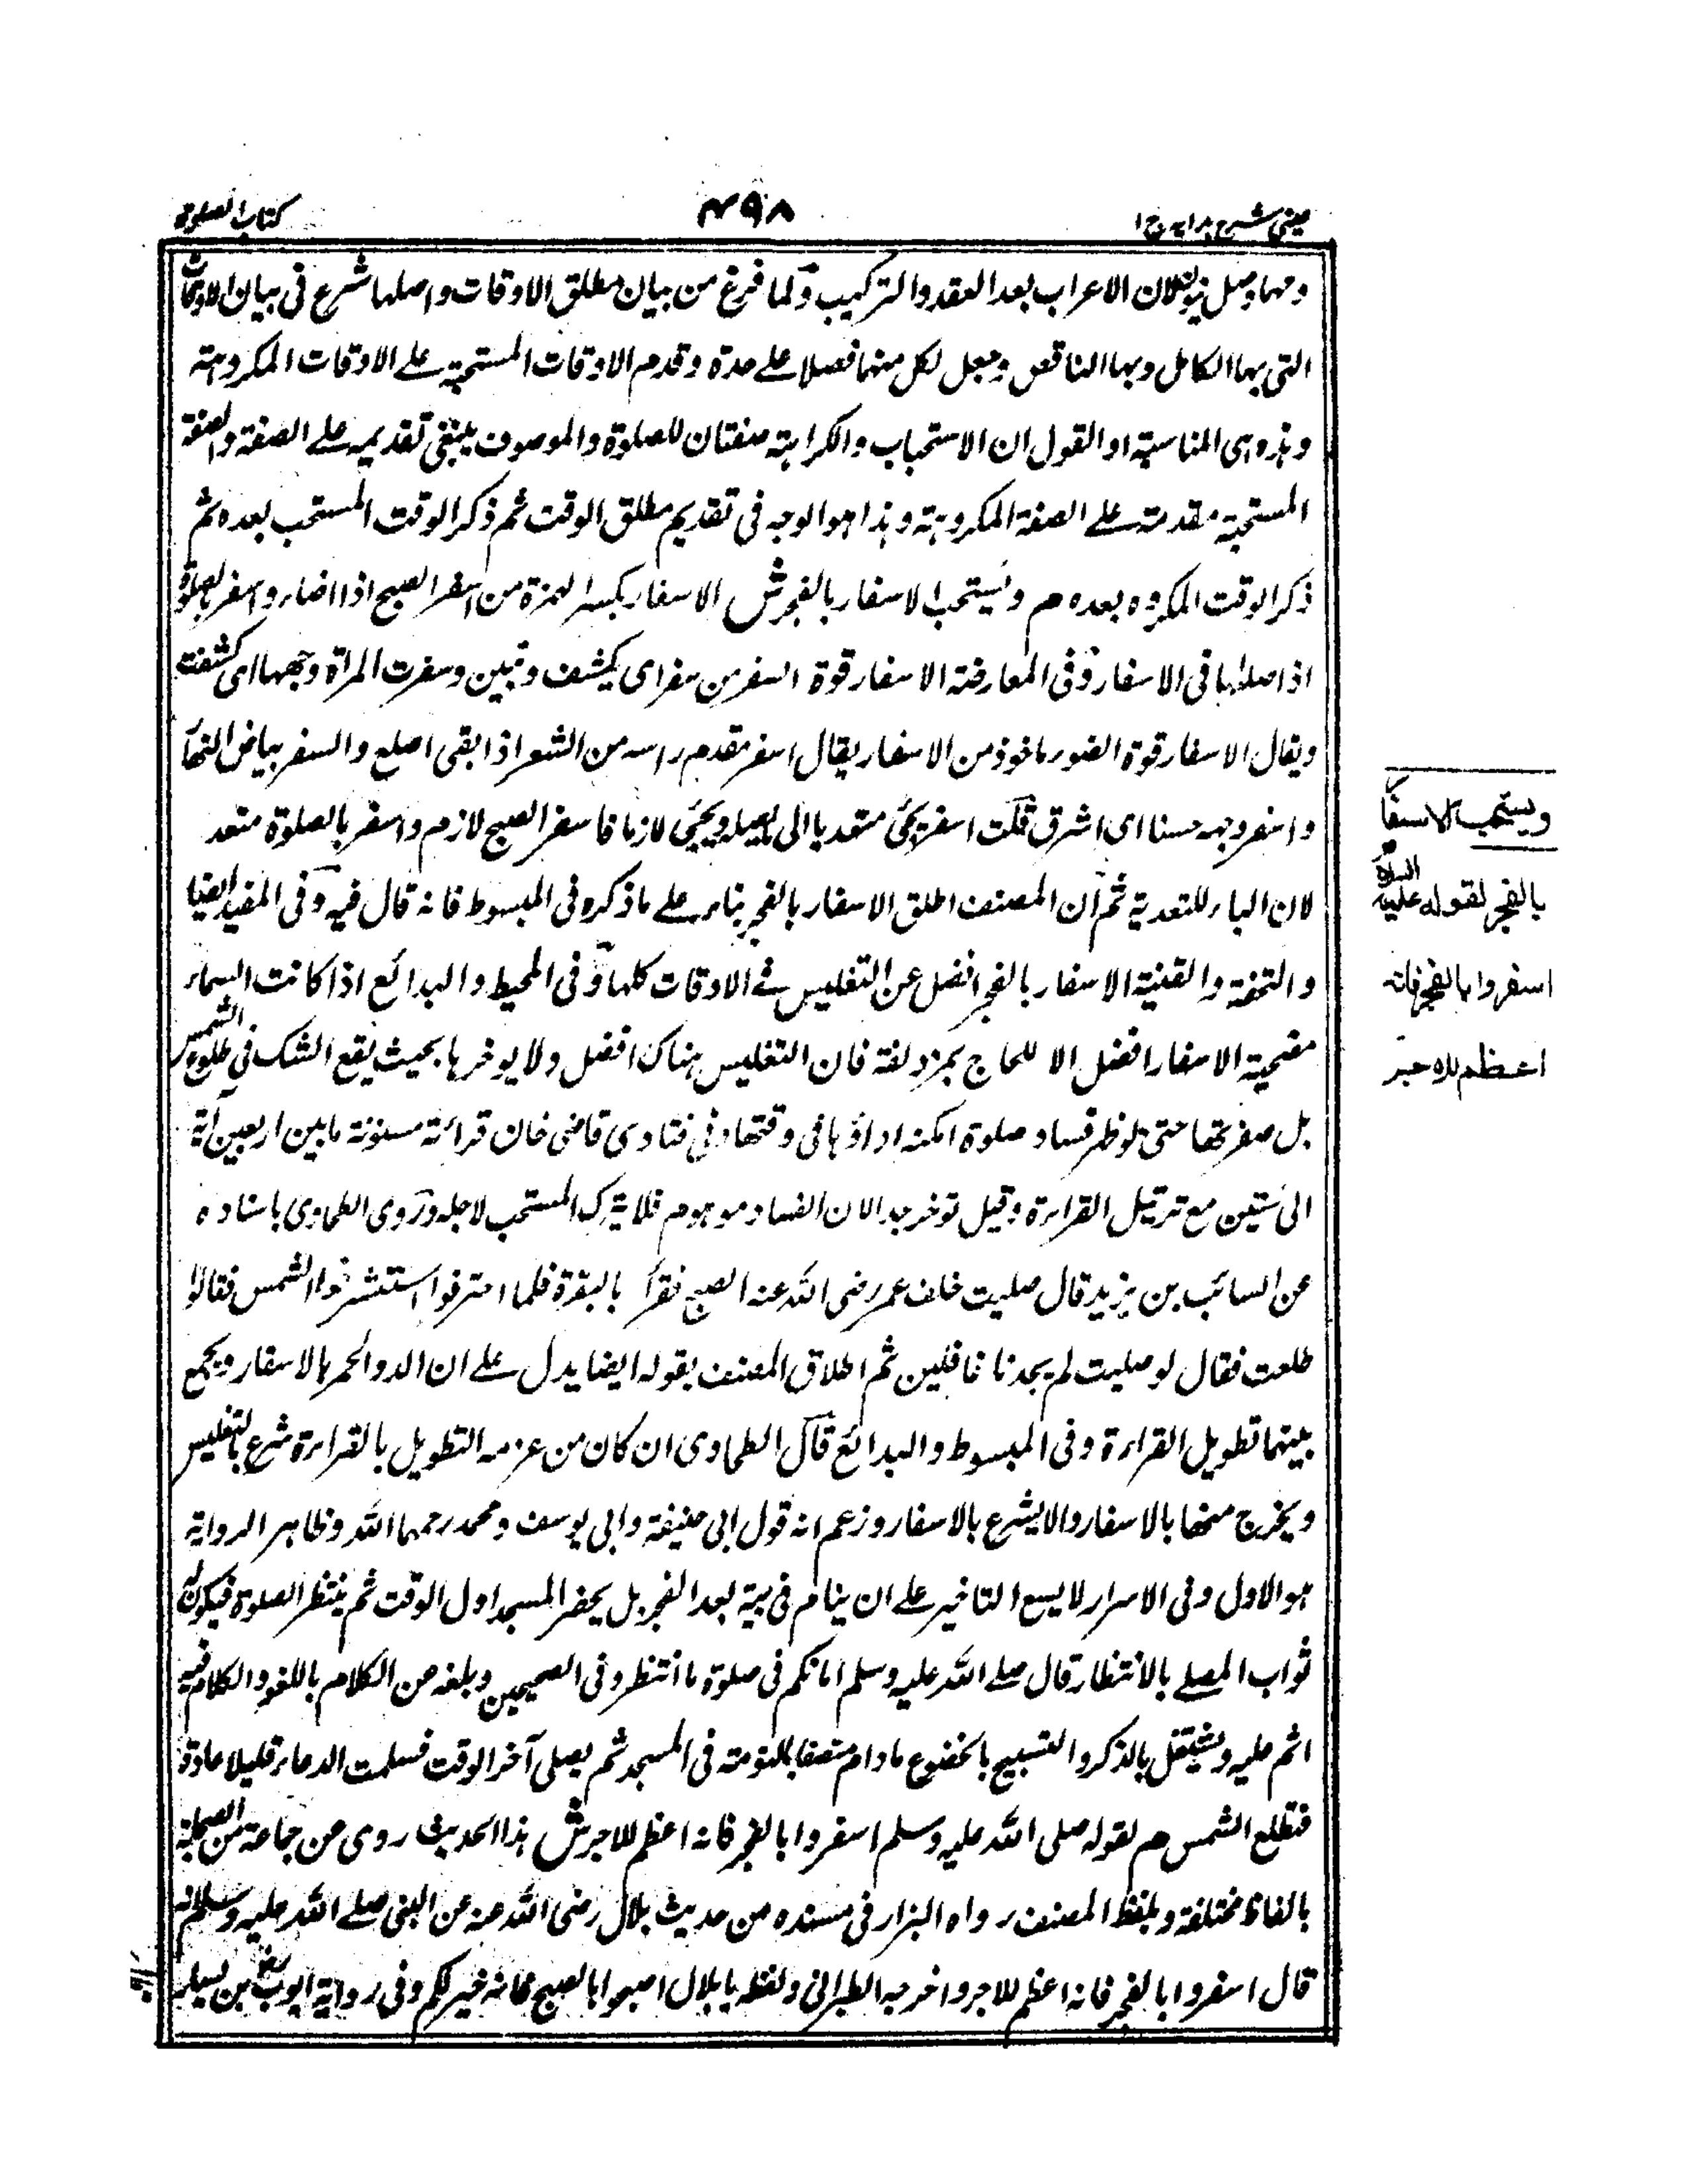 عينى شرح هدايه ج ا
٤٩٨
كتاب الصلوة
ومهما وصل نيون لان الاعراب بعد العقد والتركيب ولما فرغ من بيان مطلق الاوقات واصلها شرع فى بيان الاوقات
التى بها الكامل وبها الناقص وجعل لكل منهما فصلا على حدة وقدم الاوقات المستحبة على الاوقات المكروهة
وهذه هى المناسبة او القول ان الاستحباب والكراهة صفتان للصلوة والموصوف ينبغى تقديمه على الصفة والصفة
المستحبة مقدمة على الصفة المكروهة وهذا هو الوجه فى تقديم مطلق الوقت ثم ذكر الوقت المستحب بعده ثم
ذكر الوقت المكروه بعده م ويستحب الاسفار بالفجر ش الاسفار بكسر الهمزة من اسفر الصبح اذا اضاء واسفر بالصلوة
اذا صلاها فى الاسفار وفى المعارضة الاسفار قوة السفر من سفر اى يكشف وتبين وسفرت المراة وجهها اى كشفت
ويقال الاسفار قوة الضوء ماخوذ من الاسفار يقال اسفر مقدم راسه من الشعر اذا بقى اصلع والسفر بياض النهار
واسفر وجهه حسنا اى اشرق قلت اسفر يجئ متعديا الى يصله ويجئى لازما فاسفر الصبح لازم واسفر بالصلوة متعد
لان الباء للتعدية ثم ان المصنف اطلق الاسفار بالفجر بناء على ما ذكره فى المبسوط فانه قال فيه وفى المفيد ايضا
والتحفة والقنية الاسفار بالفجر افضل عن التغليس فى الاوقات كلها وفى المحيط والبدائع اذا كانت السماء
مضحية الاسفار افضل الا للحاج بمزدلفة فان التغليس هناك افضل ولا يوخرها بحيث يقع الشك فى طلوع الشمس
بل صفر بها حتى لو ظهر فساد صلوة امكنه اداؤها فى وقتها وفى فتاوى قاضى خان قرائة مسنونة ما بين اربعين آية
الى ستين مع ترتيل القراءة وقيل توخر جدا لان الفساد موهوم فلا يترك المستحب لاجله وروى الطحاوى باسناده
عن السائب بن يزيد قال صليت خلف عمر رضى الله عنه الصبح فقرأ بالبقرة فلما احترفوا استشرفوا الشمس فقالوا
طلعت فقال لو صليت لم يجدنا غافلين ثم اطلاق المصنف بقوله ايضا يدل على ان الدوالحمر بالاسفار ويجمع
بينهما تطويل القراءة وفى المبسوط والبدائع قال الطحاوى ان كان من عزمه التطويل بالقراءة شرع بالتغليس
ويخرج منها بالاسفار والا يشرع بالاسفار وزعم انه قول ابى حنيفة وابى يوسف ومحمد رحمهما الله وظاهر الرواية
هو الاول وفى الاسرار لا يسع التاخير على ان ينام فى بيته بعد الفجر بل يحضر المسجد اول الوقت ثم ينتظر الصلوة فيكون له
ثواب المصلى بالانتظار قال صلى الله عليه وسلم امانكم فى صلوة ما انتظر وفى الصحيحين وبلغه من الكلام باللغو والكلام فيه
اثم عليه ويشتغل بالذكر والتسبيح بالخضوع ما دام متصفا بالتومته فى المسجد ثم يصلى آخر الوقت فسلمت الدماء قليلا عادة
فتطلع الشمس م لقوله صلى الله عليه وسلم اسفروا بالفجر فانه اعظم للاجر ش هذا الحديث روى عن جماعة من الصحابة
بالفاظ مختلفة وبلفظ المصنف رواه البزار فى مسنده من حديث بلال رضى الله عنه عن النبى صلى الله عليه وسلم انه
قال اسفروا بالفجر فانه اعظم للاجر واخرجه الطبرانى ولفظه يا بلال اصبحوا بالصبح فانه خير لكم وفى رواية ايوب بن يسار
ويستحب الاسفار
بالفجر لقوله عليه السلام
اسفروا بالفجر فانه
اعظم للاجر